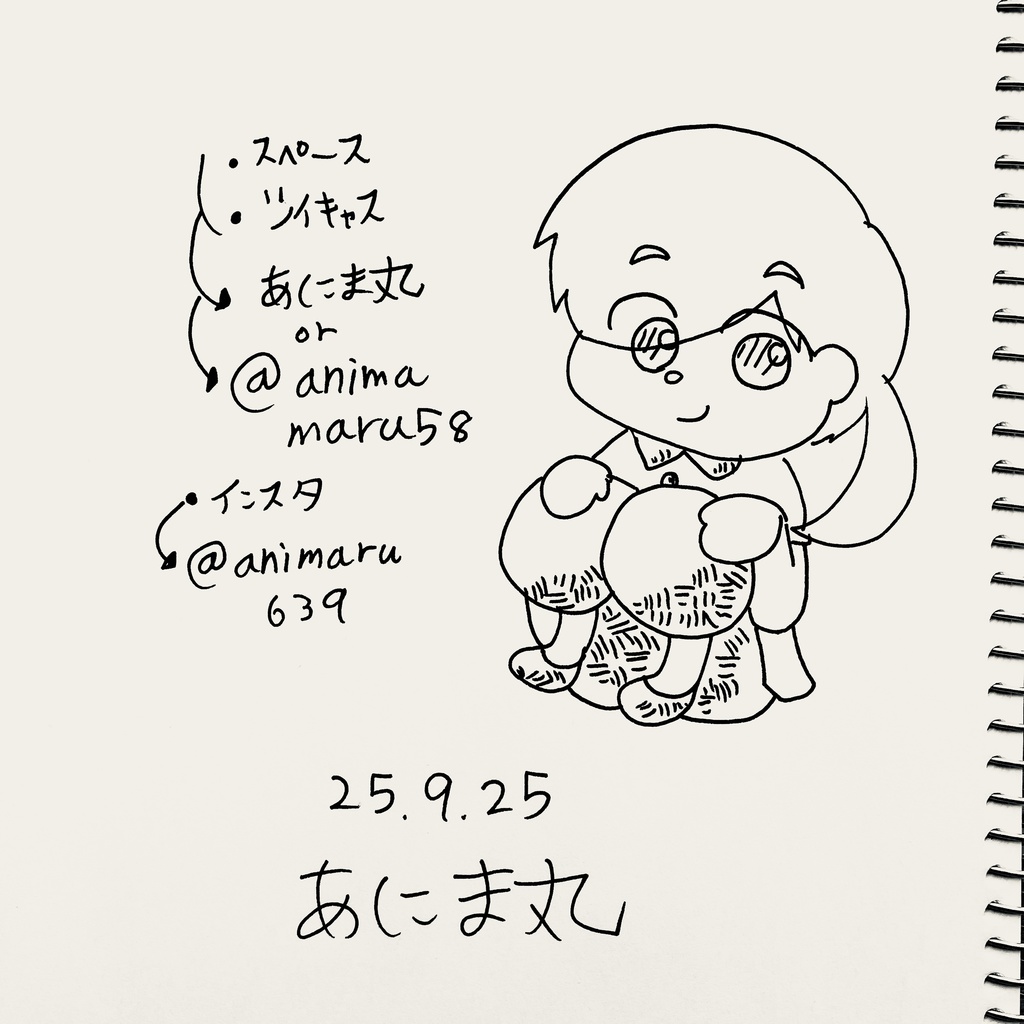 ・スペース
・ツイキャス
あにま丸
or
@anima
maru58
・インスタ
@animaru
639
25.9.25
あにま丸